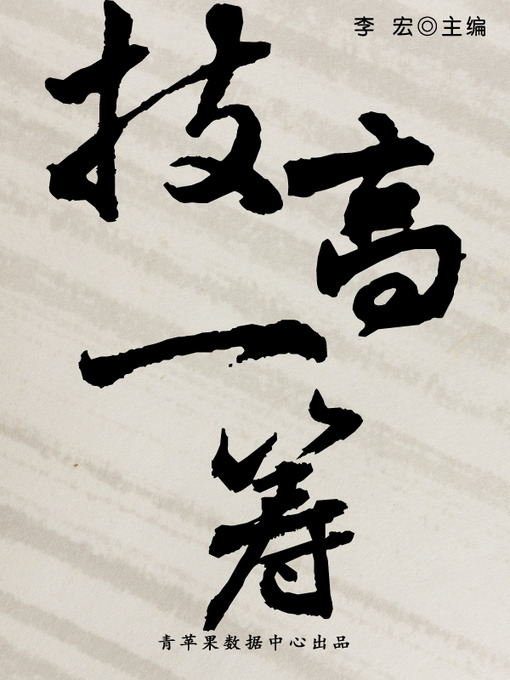 李 宏◎主编
技高一筹
青苹果数据中心出品